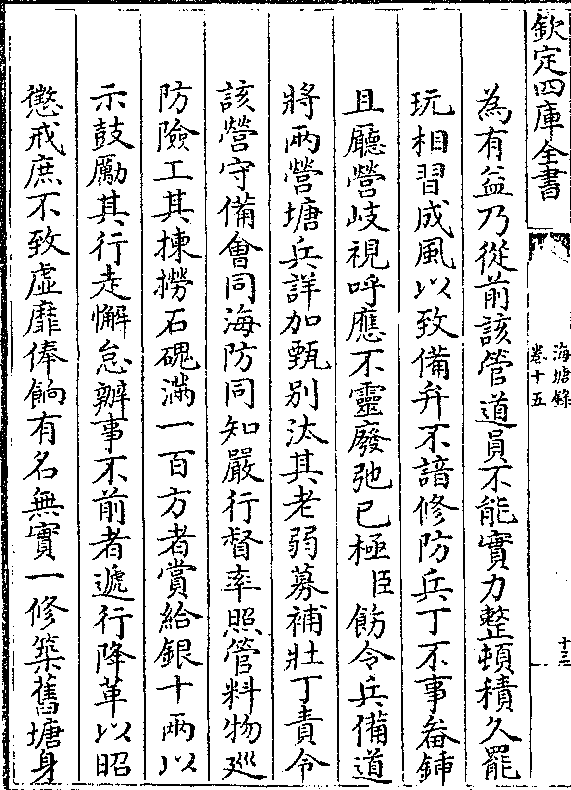 欽定四庫全書
海塘錄
卷十五
十三
為有益乃從前該管道員不能實力整頓積久罷
玩相習成風以致備弁不諳修防兵丁不事畚鍤
且廳營歧視呼應不靈廢弛已極臣飭令兵備道
將兩營塘兵詳加甄別汰其老弱募補壯丁責令
該營守備會同海防同知嚴行督率照管料物廵
防險工其揀撈石磈滿一百方者賞給銀十兩以
示鼓勵其行走懈怠辦事不前者遞行降革以昭
懲戒庶不致虛靡俸餉有名無實一修築舊塘身